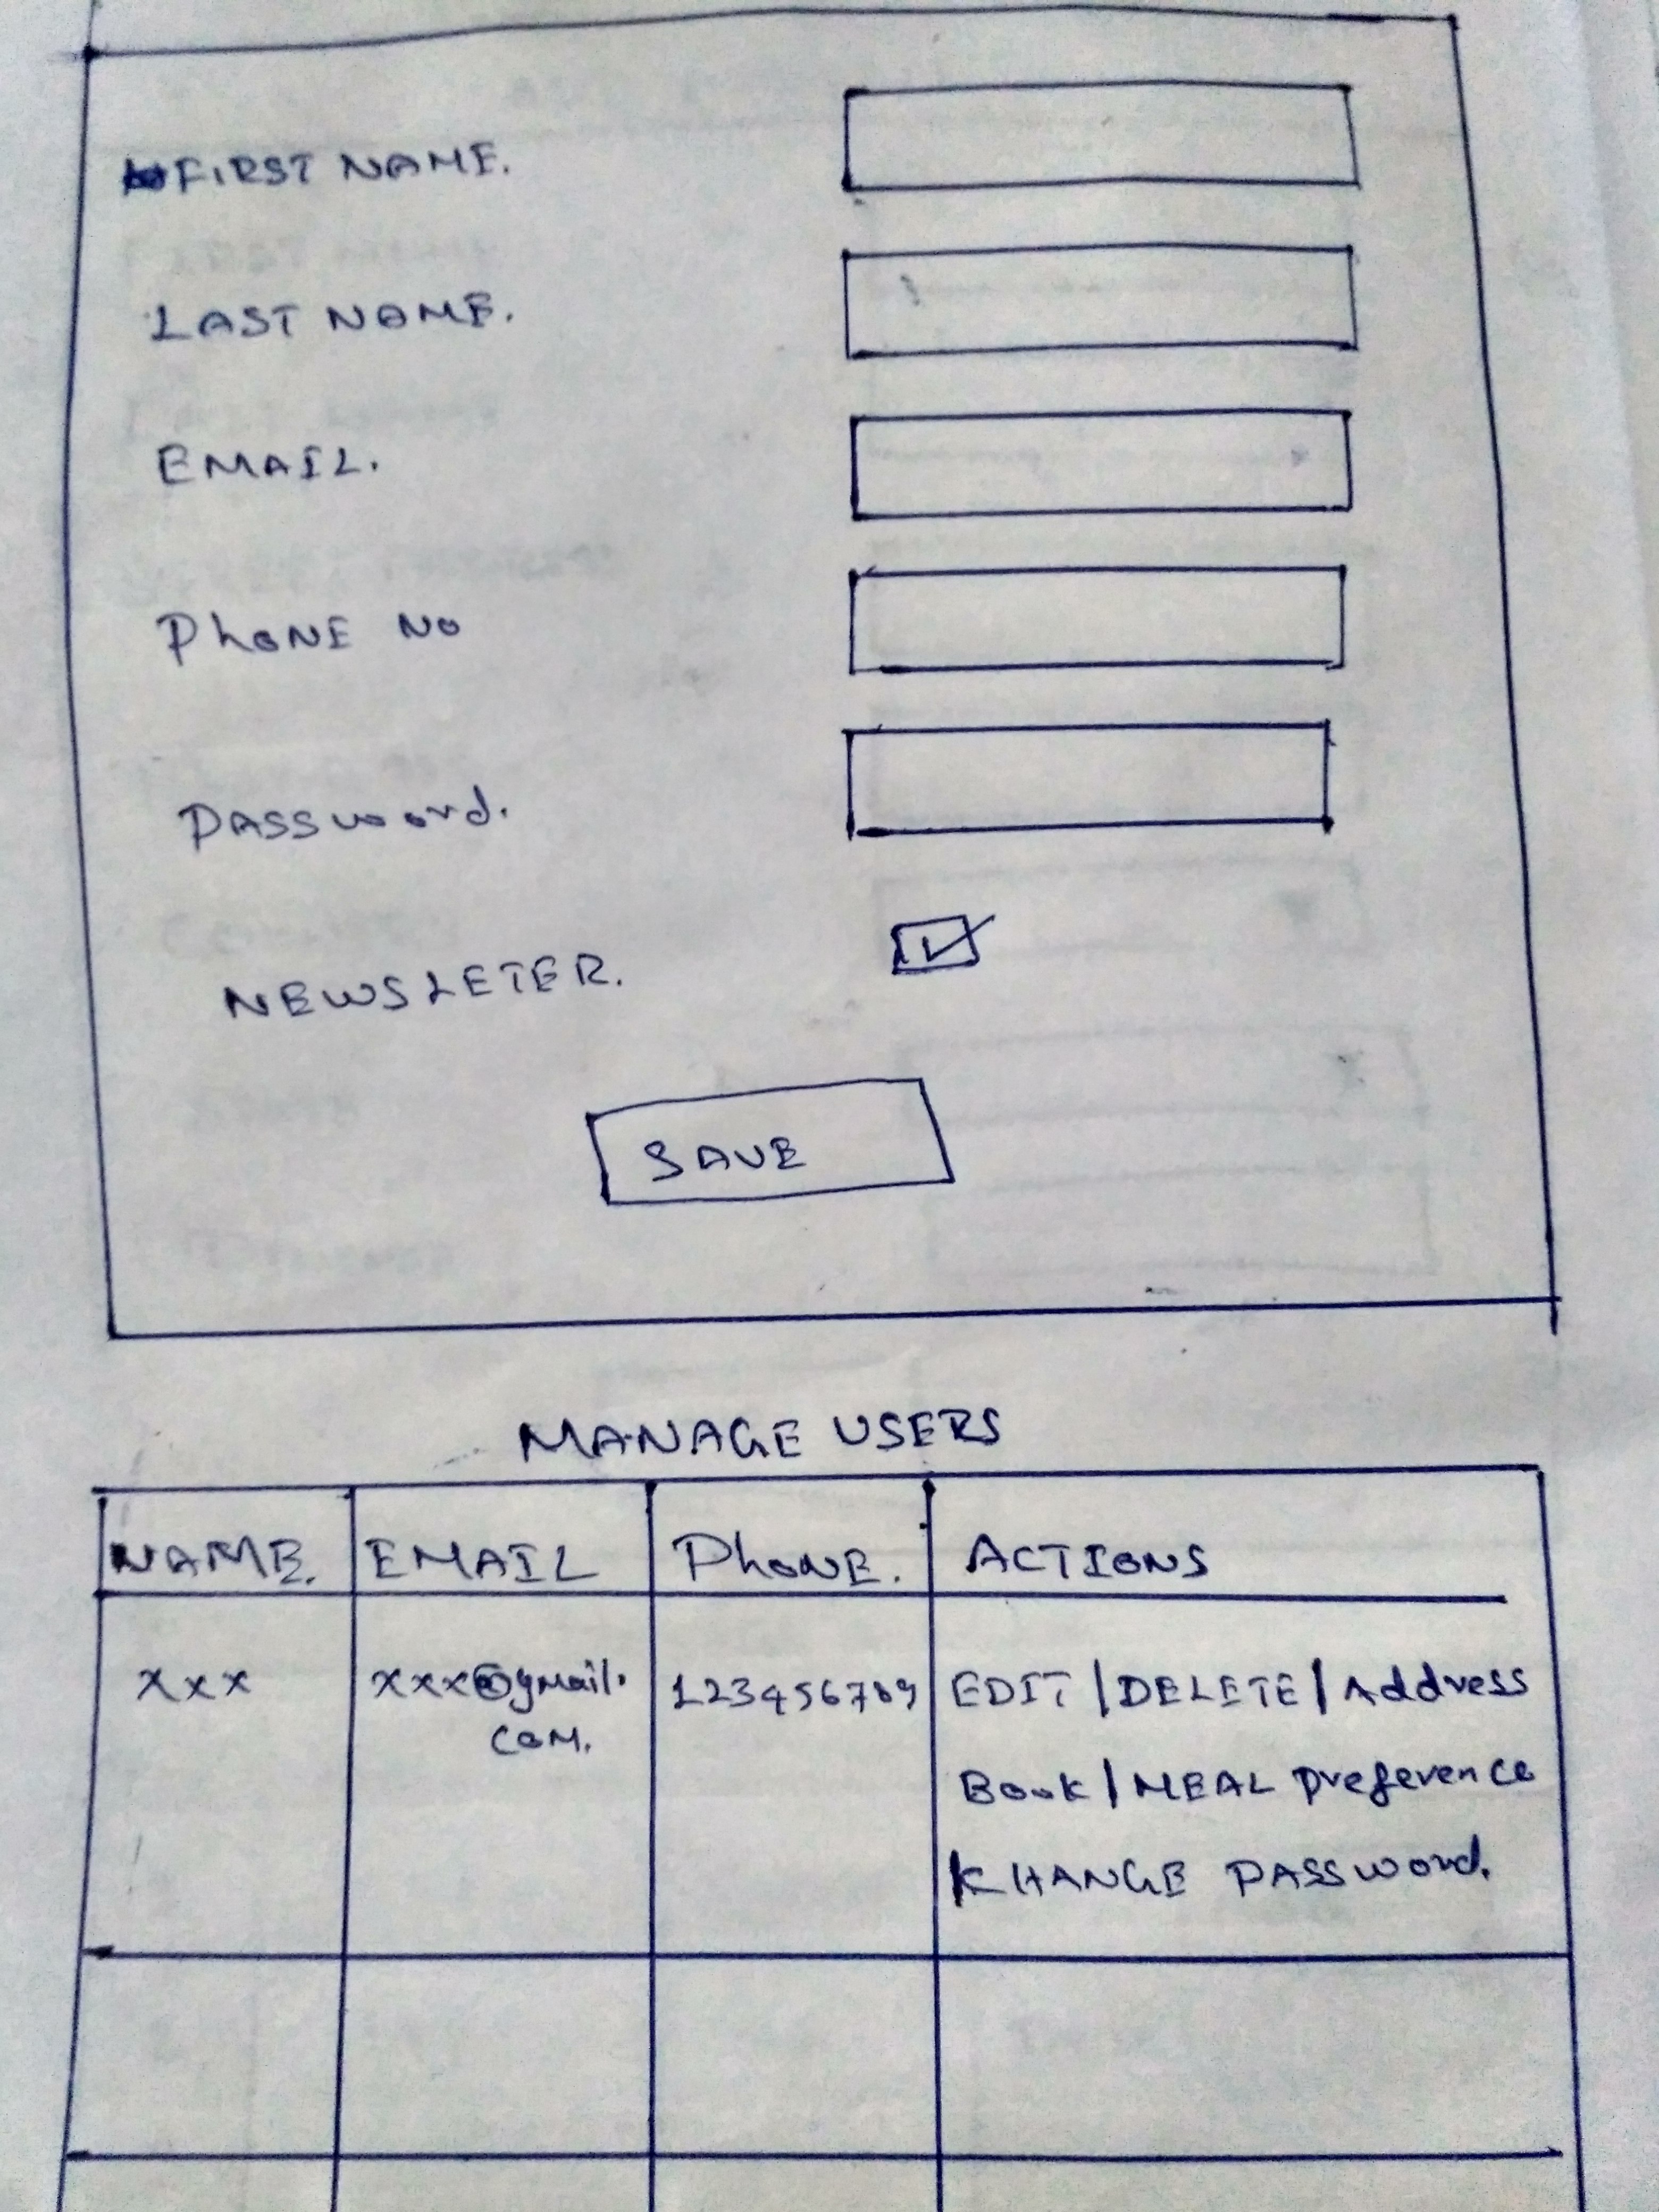 FIRST NAME.
LAST NAME.
EMAIL.
PhONE NO
PASSword.
NEWSLETER.
SAVE
MANAGE USERS
NAME. EMAIL PhONE. ACTIONS
xxx xxx@gmail. 123456789 EDIT / DELETE / Address
COM. Book / MEAL preference
/ CHANGE PASSword.